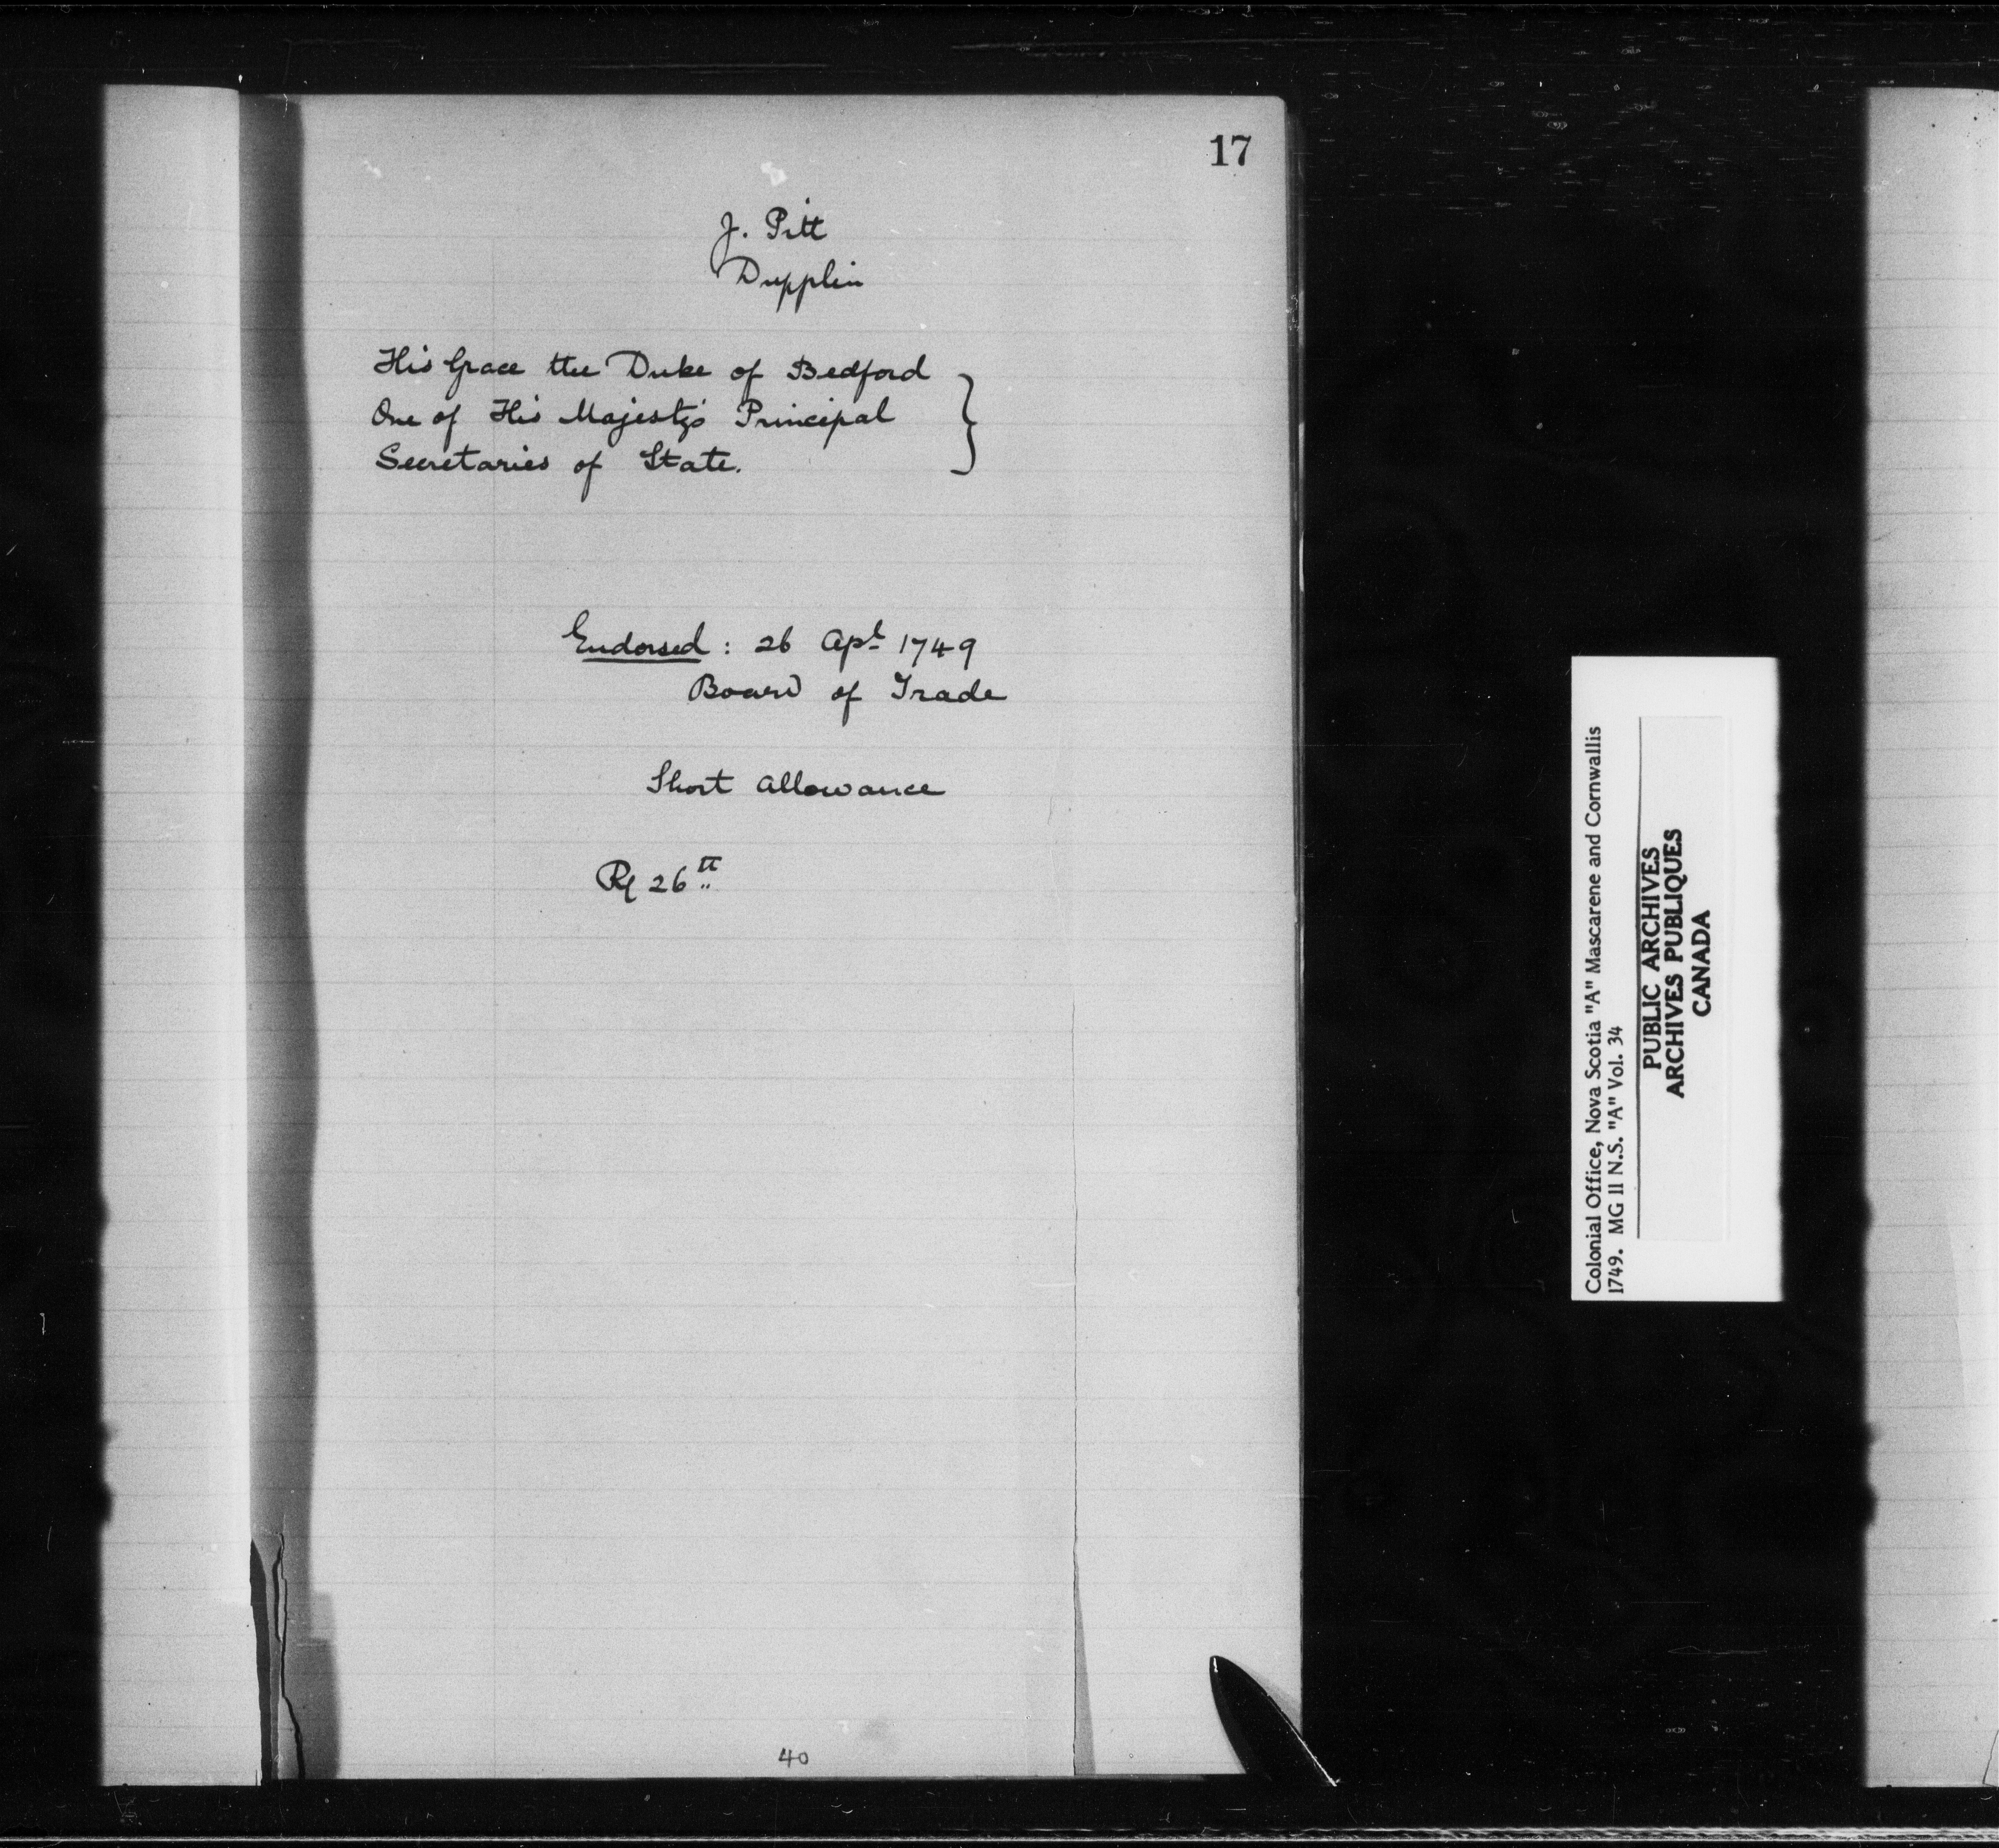 17
J. Pitt
Dupplin
His Grace the Duke of Bedford
One of His Majesty's Principal
Secretaries of State.
Endorsed : 26 Apl 1749
Board of Trade
Short allowance
R 26th
40
Colonial Office, Nova Scotia "A" Mascarene and Cornwallis
1749. MG 11 N.S. "A" Vol. 34
PUBLIC ARCHIVES
ARCHIVES PUBLIQUES
CANADA